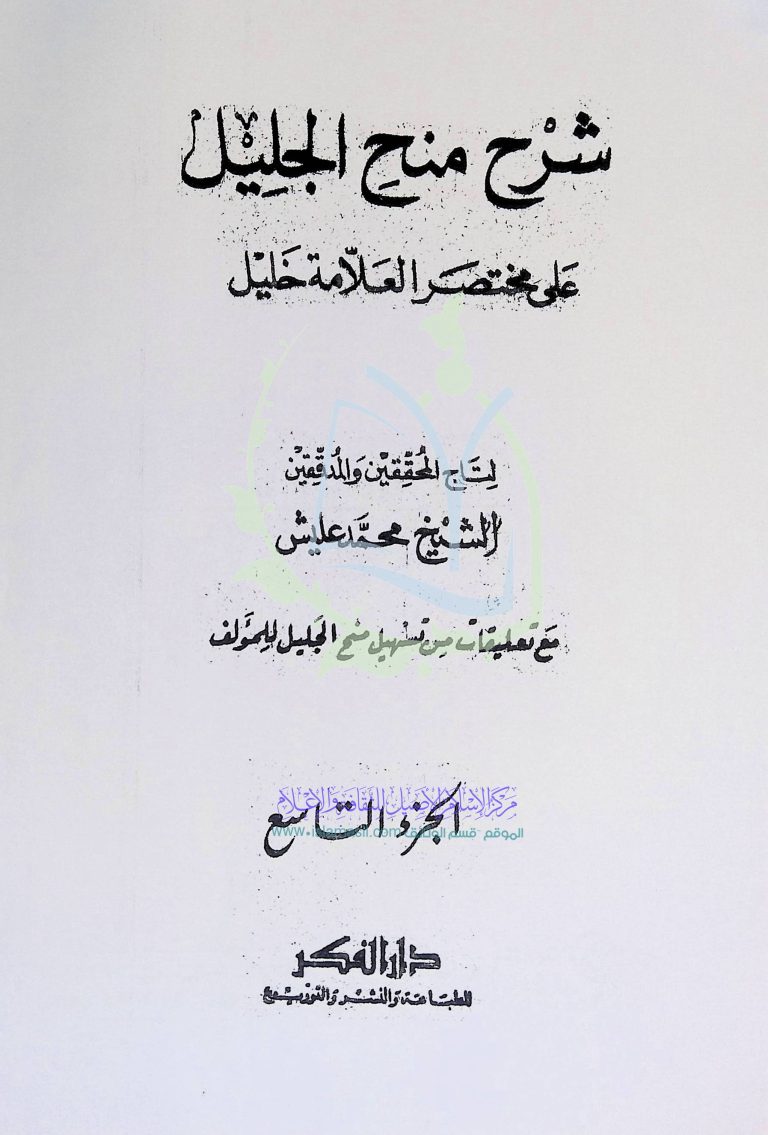 شَرْح منح الجلِيْل
عَلى مختصَر العَلاّمة خَليْل
لِتَاج المُحقِّقيْن وَالمُدقِّقِيْن
الشيْخ محمَّد عليش
مَع تعليقات من تسْهيل منح الجَليل للِمؤَلف
مركز الإسلام الأصيل للثقافة والإعلام
الجزء التاسع
الموقع قسم الوثائق
دار الفكر
للطبَاعة وَالنشر وَالتوزيع